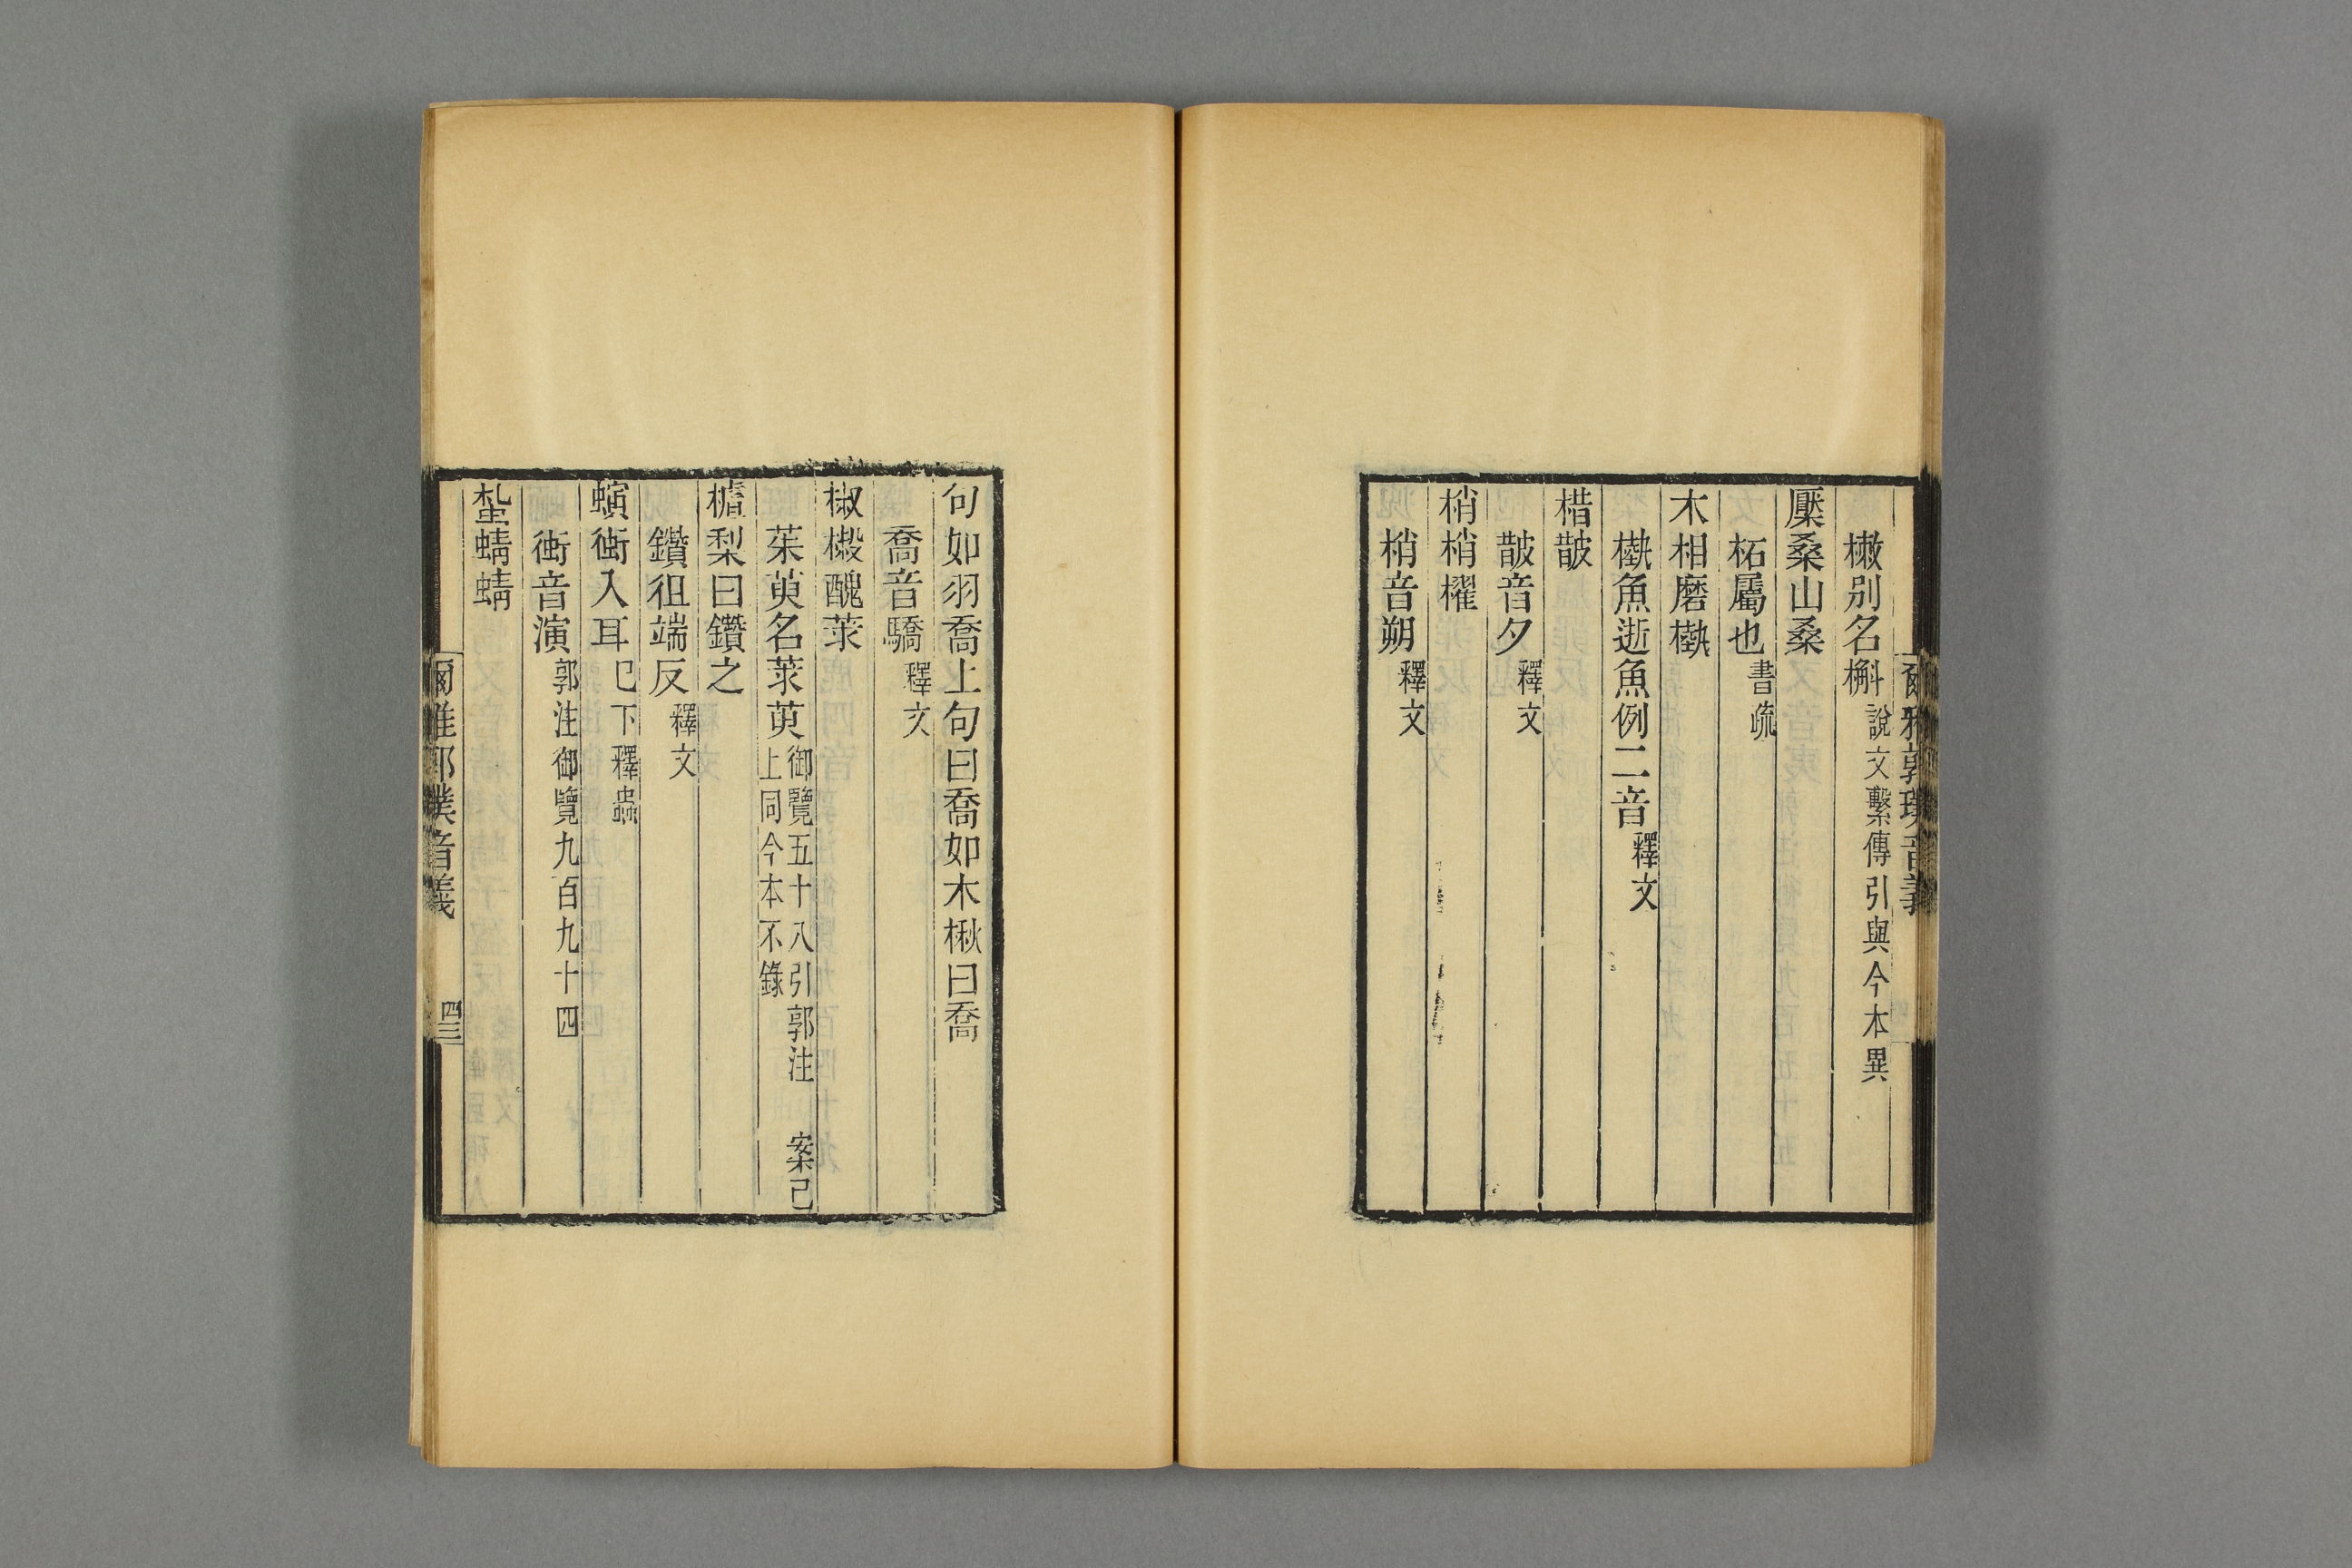 爾雅郭璞音義
樕別名槲說文繫傳引與今本異
檿桑山桑
柘屬也書疏
木相磨槸
槸魚逝魚例二音釋文
棤皵
皵音夕釋文
梢梢櫂
梢音朔釋文
句如羽喬上句曰喬如木楸曰喬
喬音驕釋文
椒樧醜莍
茱萸名莍萸御覽五十八引郭注 案已
上同今本不錄
楂梨曰鑽之
鑽徂端反釋文
螾衝入耳巳下釋蟲
衝音演郭注御覽九百九十四
蚻蜻蜻
爾雅郭璞音義 四三